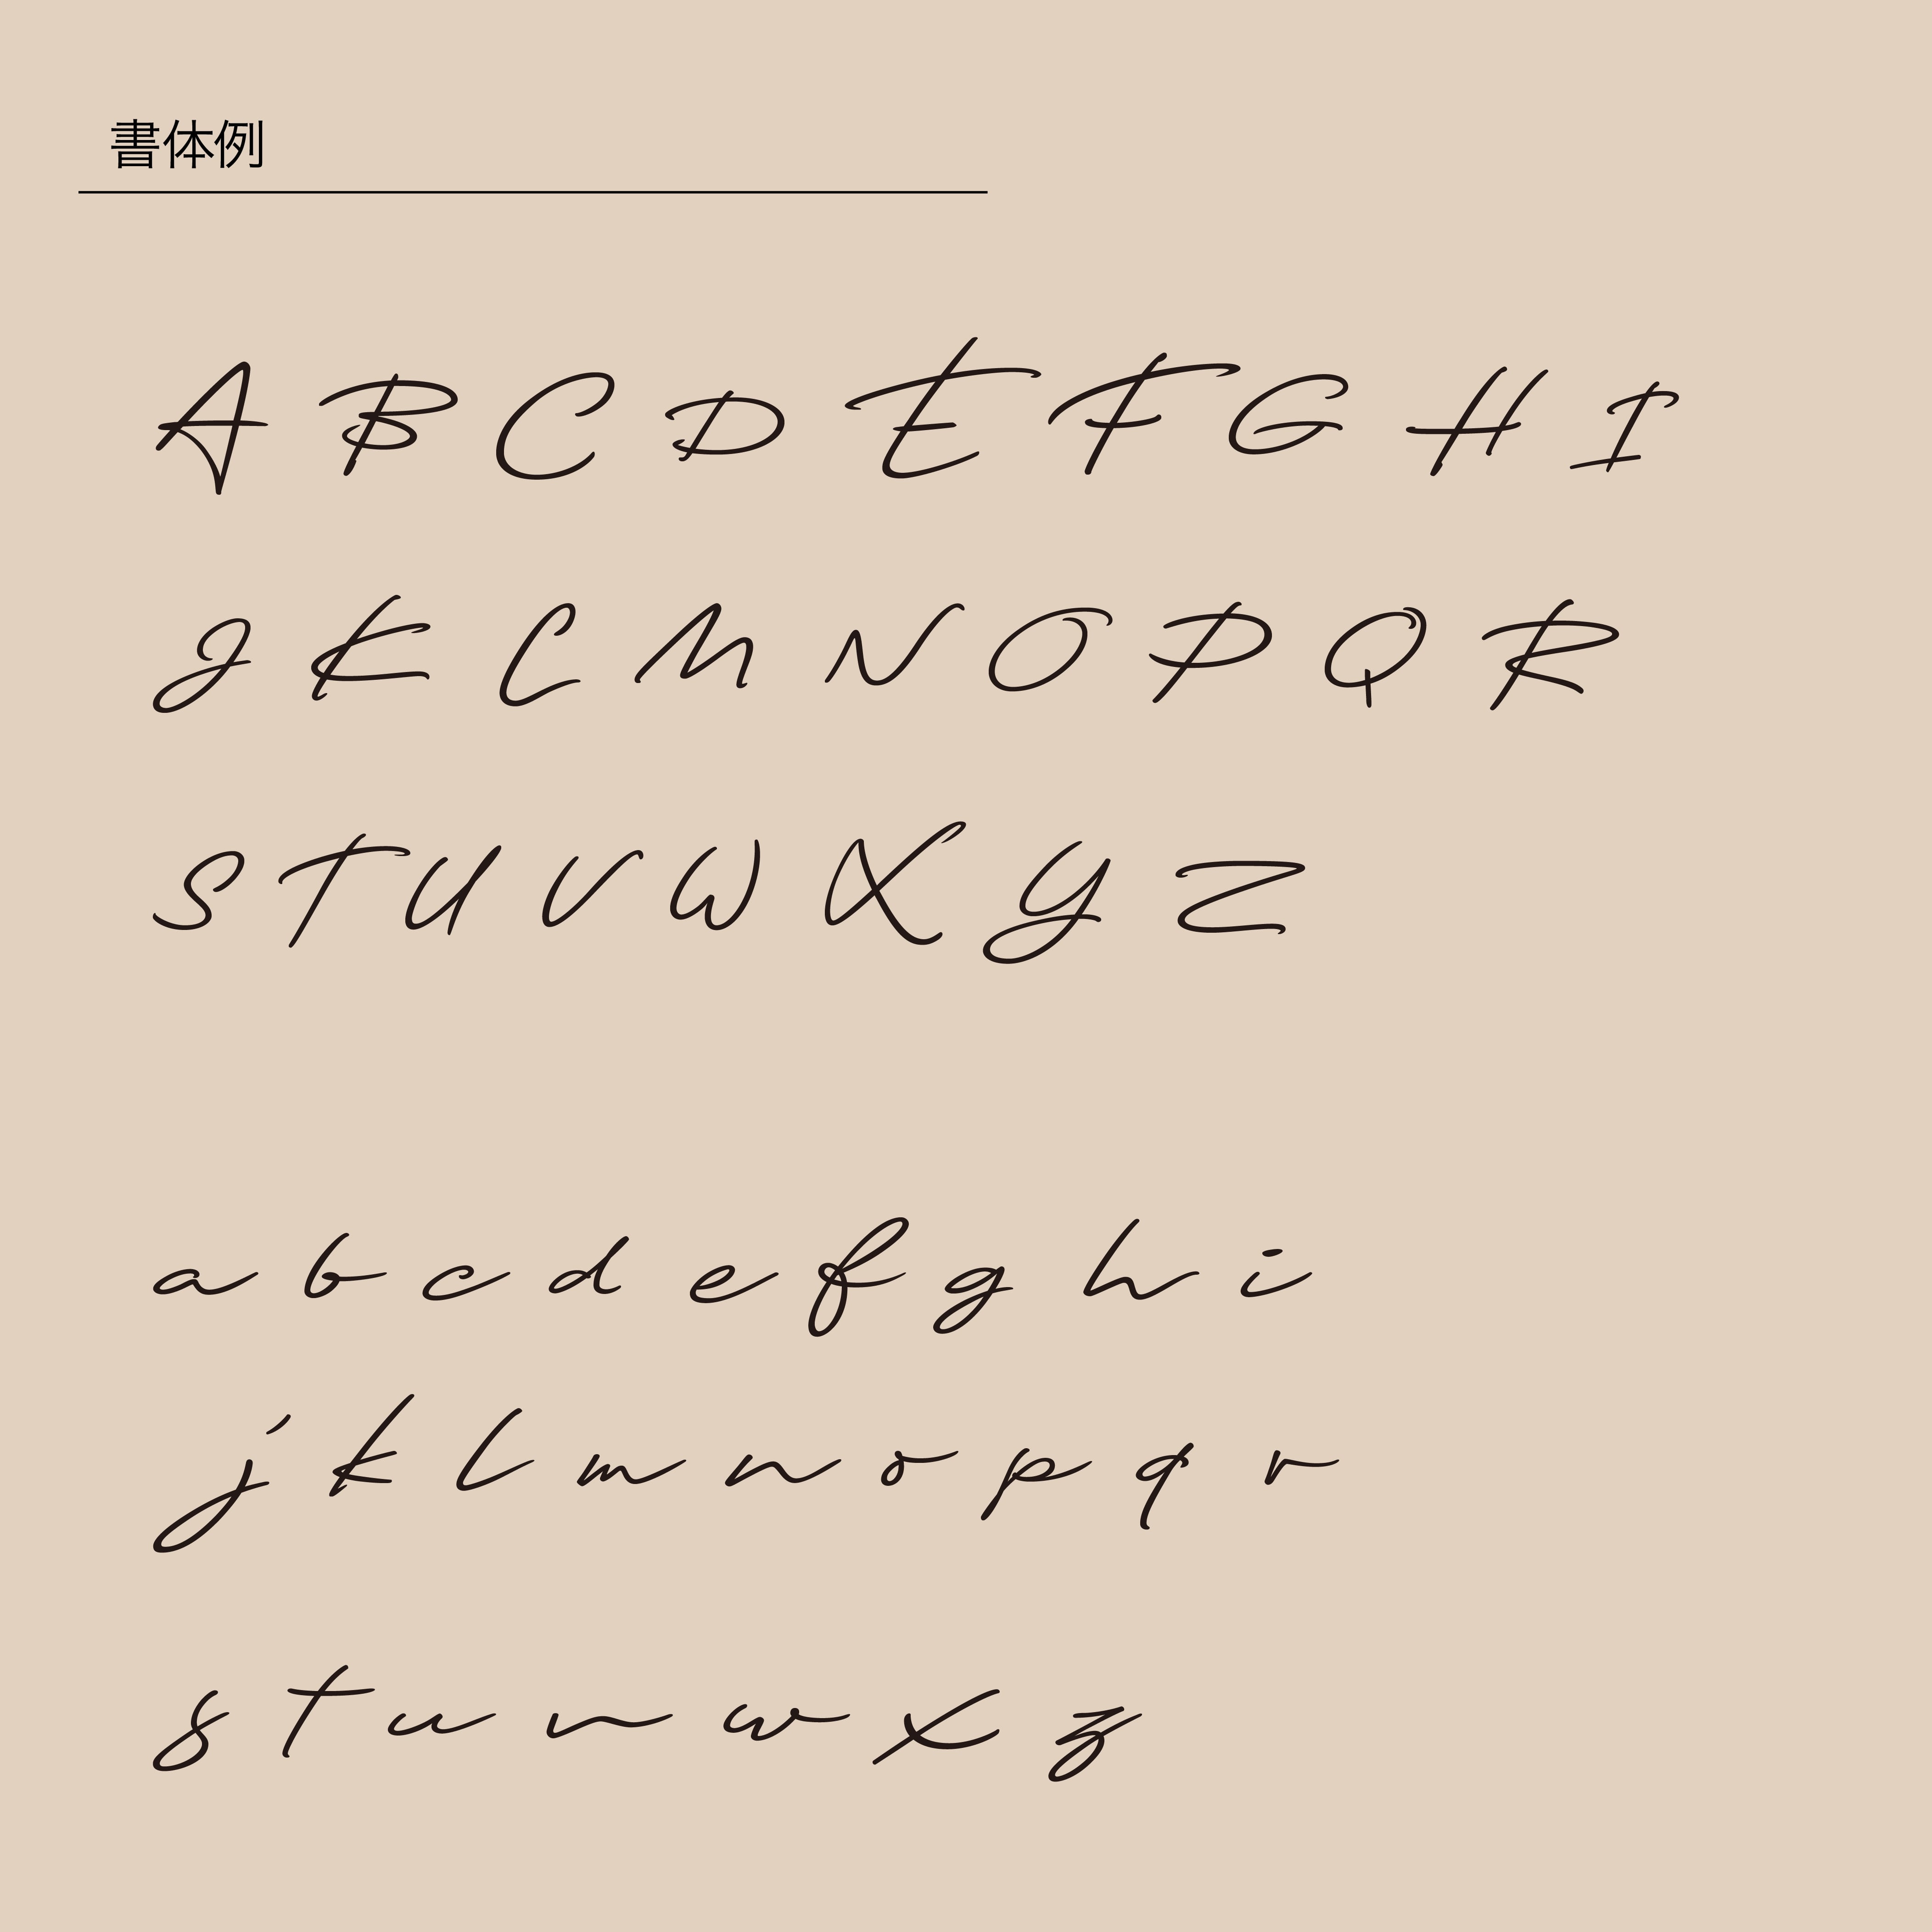 書体例
A B C D E F G H I
J K L M N O P Q R
S T U V W X Y Z
a b c d e f g h i
j k l m n o p q r
s t u v w x z